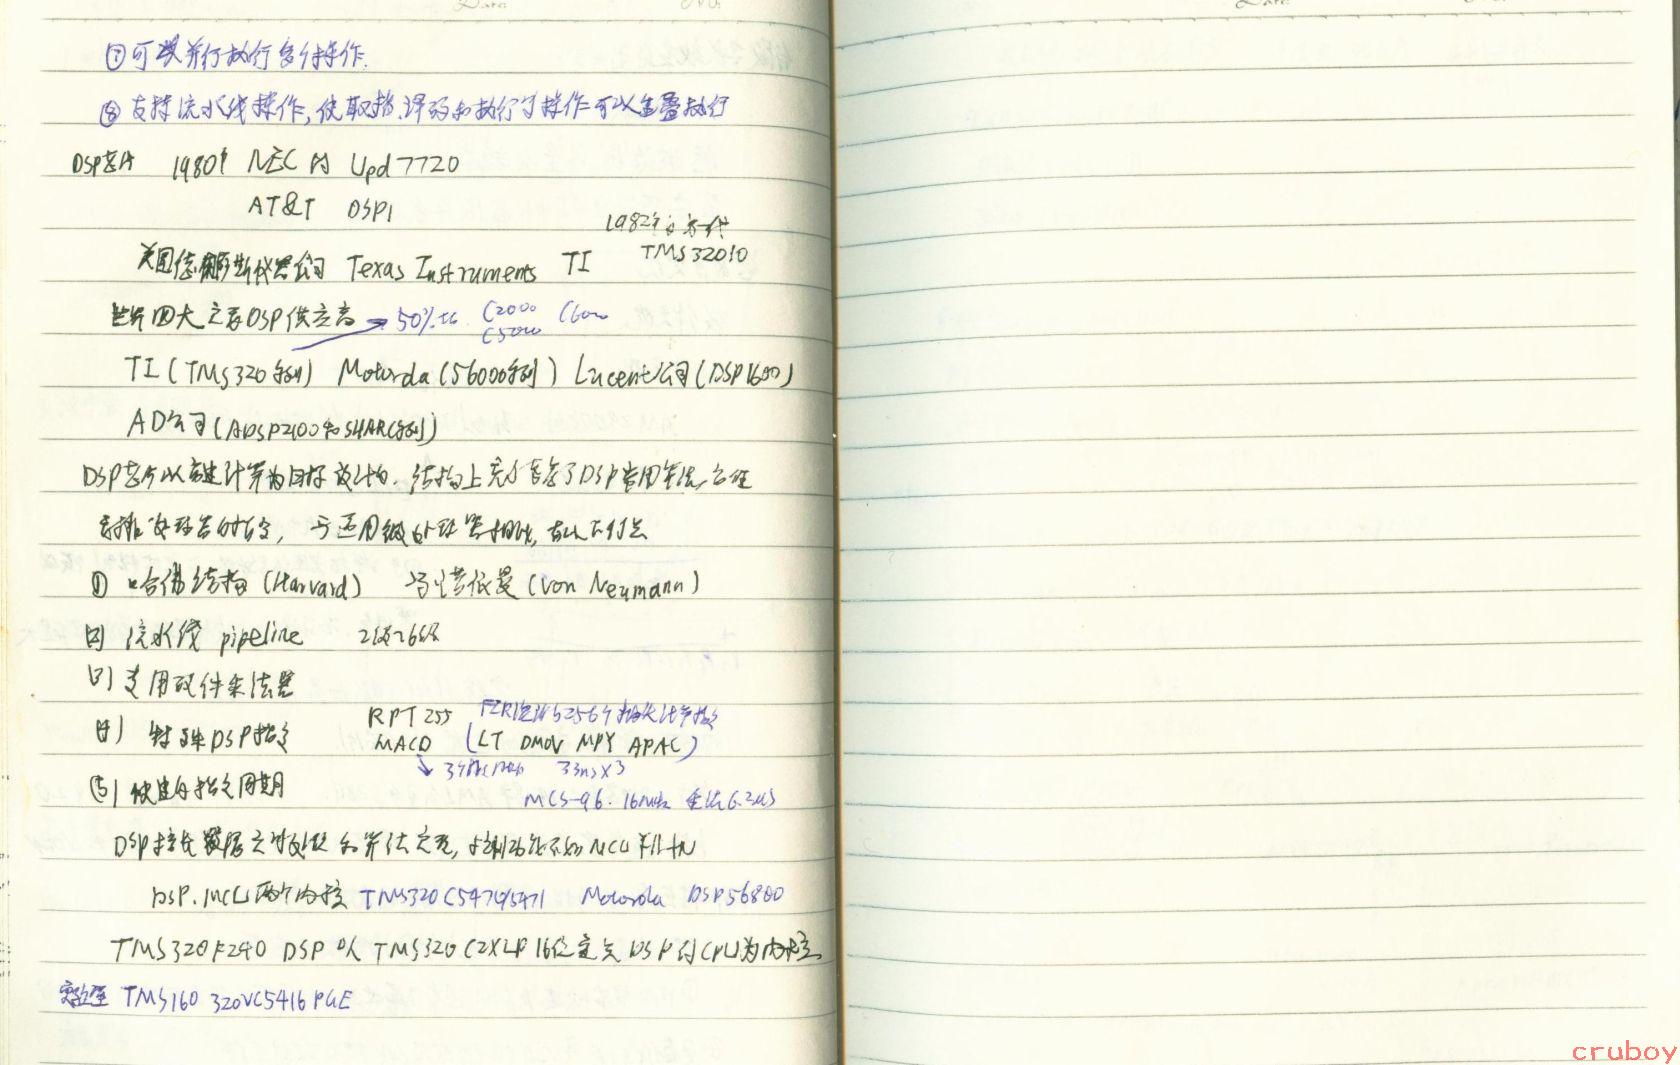 Date No.
Date
⑦可以并行执行多个操作.
⑧支持流水线操作,使取指、译码和执行等操作可以重叠执行
DSP芯片 1980年 NEC的 Upd7720
AT&T DSP1
1982年
美国德州仪器公司 Texas Instruments TI TMS32010
世界四大主要DSP供应商 50%
C2000 C6000
C5000
TI(TMS320系列) Motorola(56000系列) Lucent公司(DSP1600)
AD公司(ADSP2100和SHARC系列)
DSP芯片以高速计算为目标设计的.结构上充分考虑了DSP常用算法,合理
安排 与通用微处理器相比,有以下特点
① 哈佛结构(Harvard) 与冯诺依曼(Von Neumann)
(2) 流水线 pipeline 2级~6级
(3) 专用硬件乘法器
(4) 特殊DSP指令 RPT 255
MACD (LT DMOV MPY APAC)
33ns×3
(5) 快速的指令周期
MCS-96. 16MHz 乘法6.2us
DSP擅长数据实时处理和算法实现,控制功能不如MCU
DSP.MCU两个内核 TMS320C5470/5471 Motorola DSP56800
TMS320F240 DSP以TMS320C2XLP 16位定点DSP的CPU为内核
实验室 TMS160 320VC5416PGE
cruboy